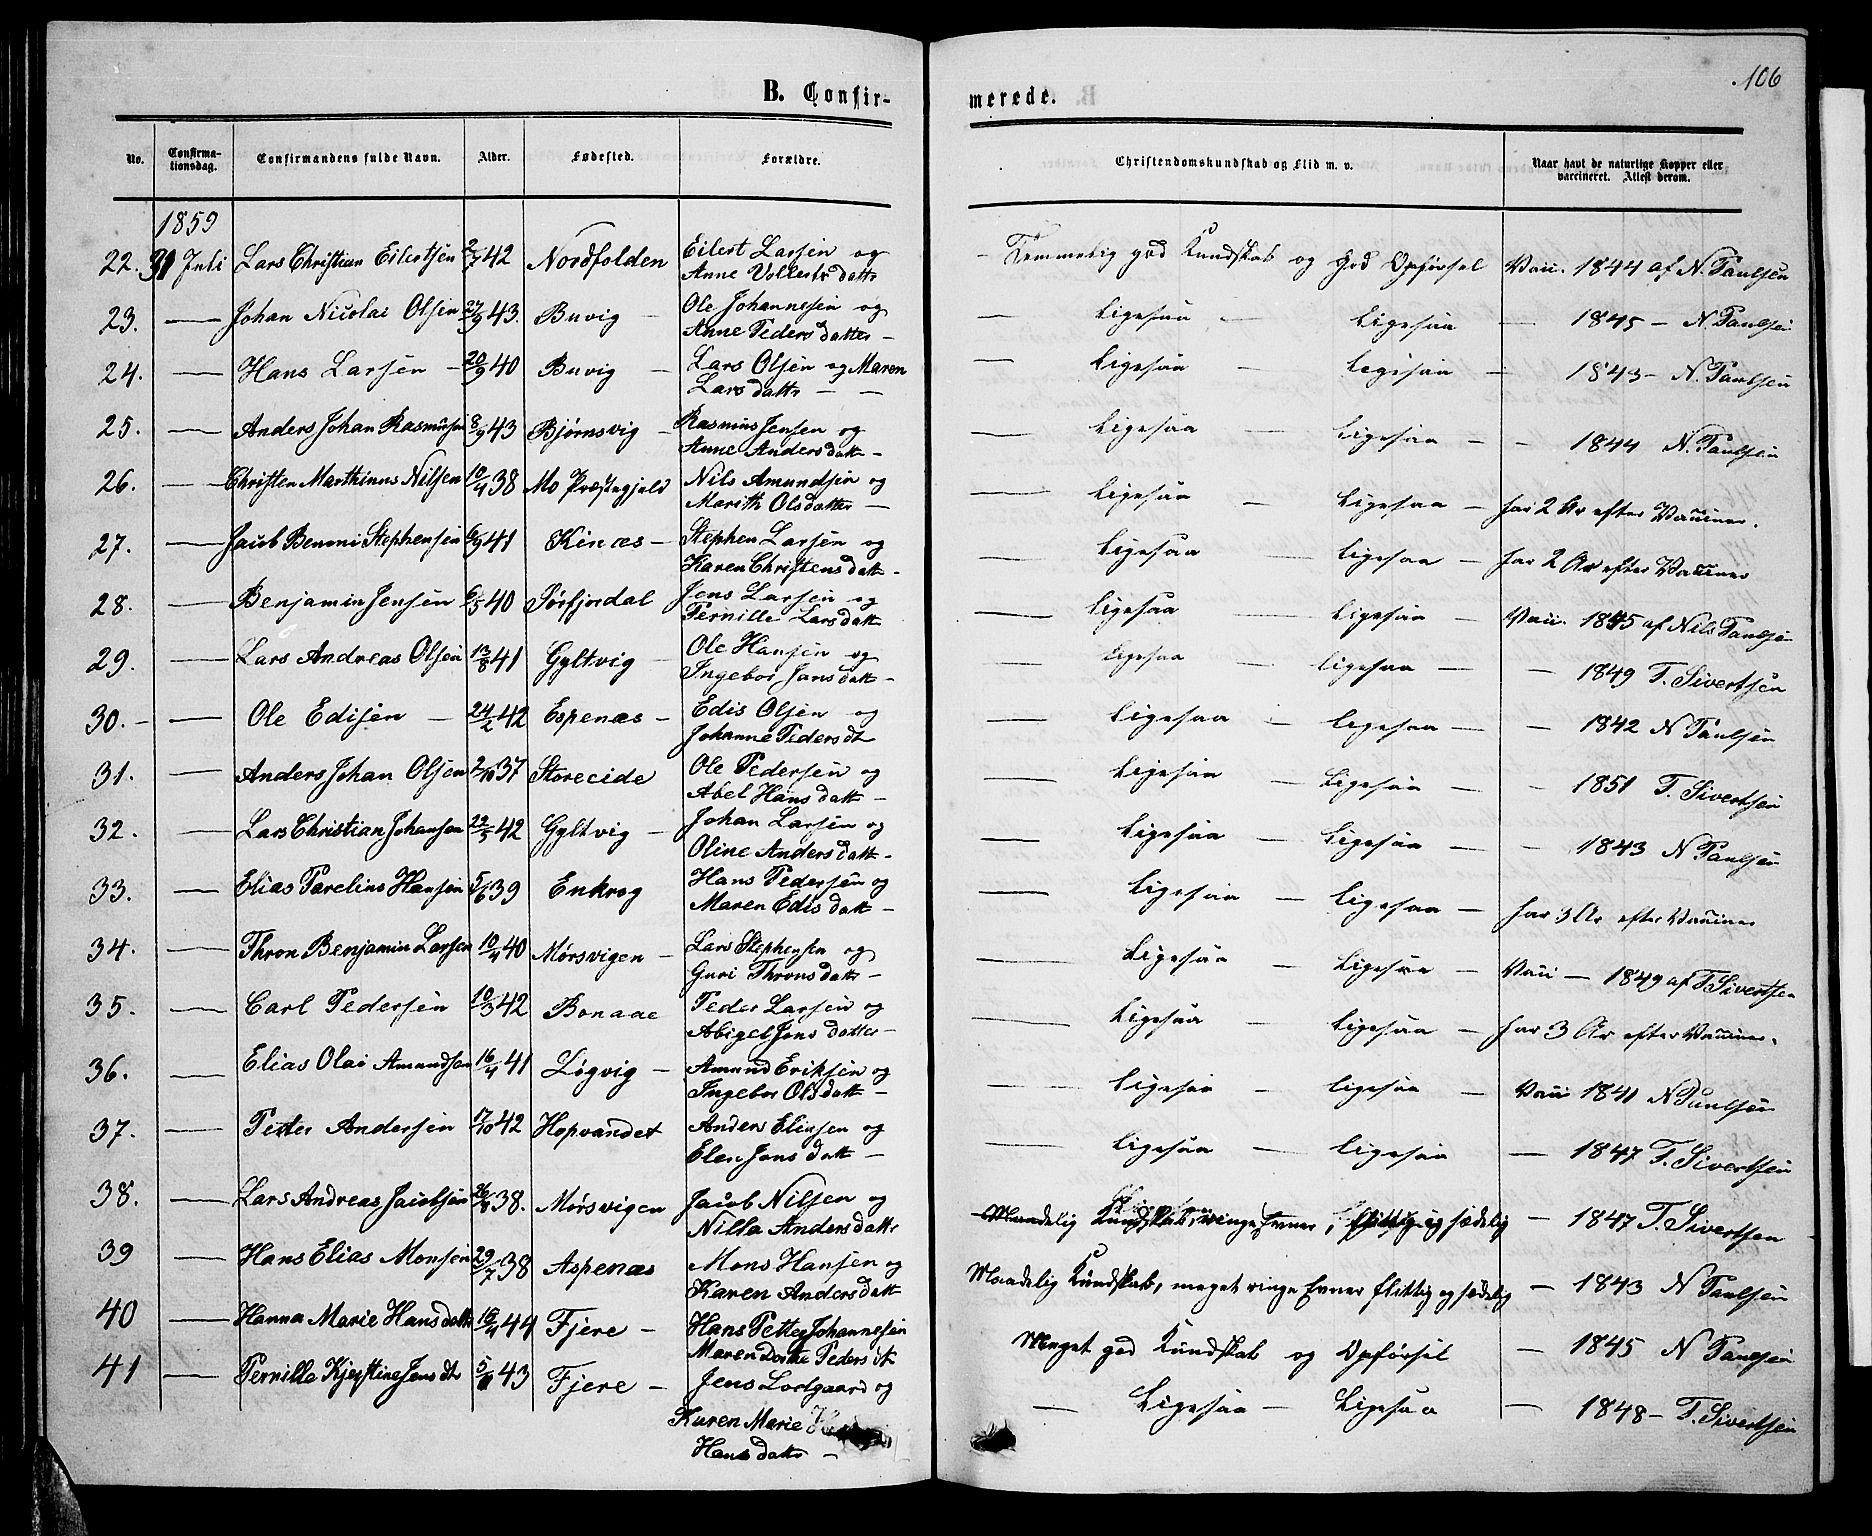 106
B. Confirmerede.
No. Confirmationsdag. Confirmandens fulde Navn. Alder. Fødested. Forældre. Christendomskundskab og Flid m. v. Naar havt de naturlige Kopper eller vaccineret. Attest derom.
1859
22. 31 Juli Lars Christian Eilertsen 2/7 42 Nordfolden Eilert Larsen og Anne Vollertsdatter - Temmelig god Kundskab og god Opførsel Vacc. 1844 af N. Paulsen
23. — Johan Nicolai Olsen 27/9 43. Buvig — Ole Johannesen og Anne Pedersdatter — Ligesaa — Ligesaa — 1845 — N Paulsen
24. — Hans Larsen — 20/9 40 Buvig — Lars Olsen og Maren Larsdattr — — Ligesaa Ligesaa — 1843 — N. Paulsen
25. — Anders Johan Rasmusen 8/9 43 Bjørnsvig — Rasmus Jensen og Anne Andersdatt — Ligesaa — Ligesaa — - 1844 N. Paulsen
26. — Christen Marthinus Nilsen 10/4 38 Mo Præstegjeld Nils Amundsen og Marith Olsdatter — Ligesaa — Ligesaa — har 2 Ar efter Vacciner.
27. — Jacob Benoni Stephensen 6/9 41 Kinæs — Stephen Larsen og Karen Christensdatt — Ligesaa — Ligesaa — har 2 Ar efter Vacciner
28. — Benjamin Jensen 6/5 40 Sørfjordal Jens Larsen og Pernille Larsdatt — Ligesaa — Ligesaa — Vacc. 1845 af Nils Paulsen
29. — Lars Andreas Olsen 13/8 41 Gyltvig — Ole Hansen og Ingebor Jansdatt — Ligesaa — Ligesaa — — 1849 T. Sivertsen
30. — — Ole Edisen — 24/2 42 Espenæs — Edis Olsen og Johanne Pedersdt — Ligesaa — Ligesaa — — 1842 N Paulsen
31. — Anders Johan Olsen 2/10 37 Storeeide Ole Pedersen og Abel Hansdatt — Ligesaa — Ligesaa — - 1851 T. Sivertsen
32. — Lars Christian Johansen 22/5 42 Gyltvig — Johan Larsen og Oline Andersdatt — Ligesaa — Ligesaa — - 1843 N Paulsen
33. — Elias Parelius Hansen 5/6 39 Enkrog Hans Pedersen og Maren Edisdatt — Ligesaa — Ligesaa — har 3 Ar efter Vacciner
34. — Thron Benjamin Larsen 10/4 40 Mørsvigen — Lars Stephensen og Guri Thronsdatt — Ligesaa — Ligesaa — Vacc — 1849 af T Sivertsen
35. — Carl Pedersen 10/3 42 Bonaae Peder Larsen og Abigel Jonsdatter — Ligesaa — Ligesaa — har 3 Ar efter Vacciner.
36. — Elias Olai Amundsen 16/4 41 Løgvig — Amund Eriksen og Ingebor Olsdatt — Ligesaa — Ligesaa — Vacc 1841 N Paulsen
37. — Petter Andersen 17/10 42 Hopvandet Anders Eliasen og Elen Jonsdatt — Ligesaa — Ligesaa — 1847 T. Sivertsen
38. — Lars Andreas Jacobsen 38. Mørsvigen Jacob Nilsen og Nilla Andersdattr Maadelig Kundskab, ringe Evner, flittig og sædelig — 1847 T. Sivertsen
39 — Hans Elias Monsen 29/7 38 Aspenæs Mons Hansen og Karen Andersdatt Maadelig Kundskab, meget ringe Evner flittig og sædelig — 1843 N Paulsen
40 — Hanna Marie Hansdattr 44 Fjere — Hans Petter Johannesen Maren Dorthe Pedersdt Meget god Kundskab og Opførsel — 1845 N Paulsen
41 — Pernilla Kjerstine Jensdt 43 Fjere — Jens Lodgaard og Karen Marie Hansdattr — — Ligesaa — Ligesaa — 1848 — T. Sivertsen